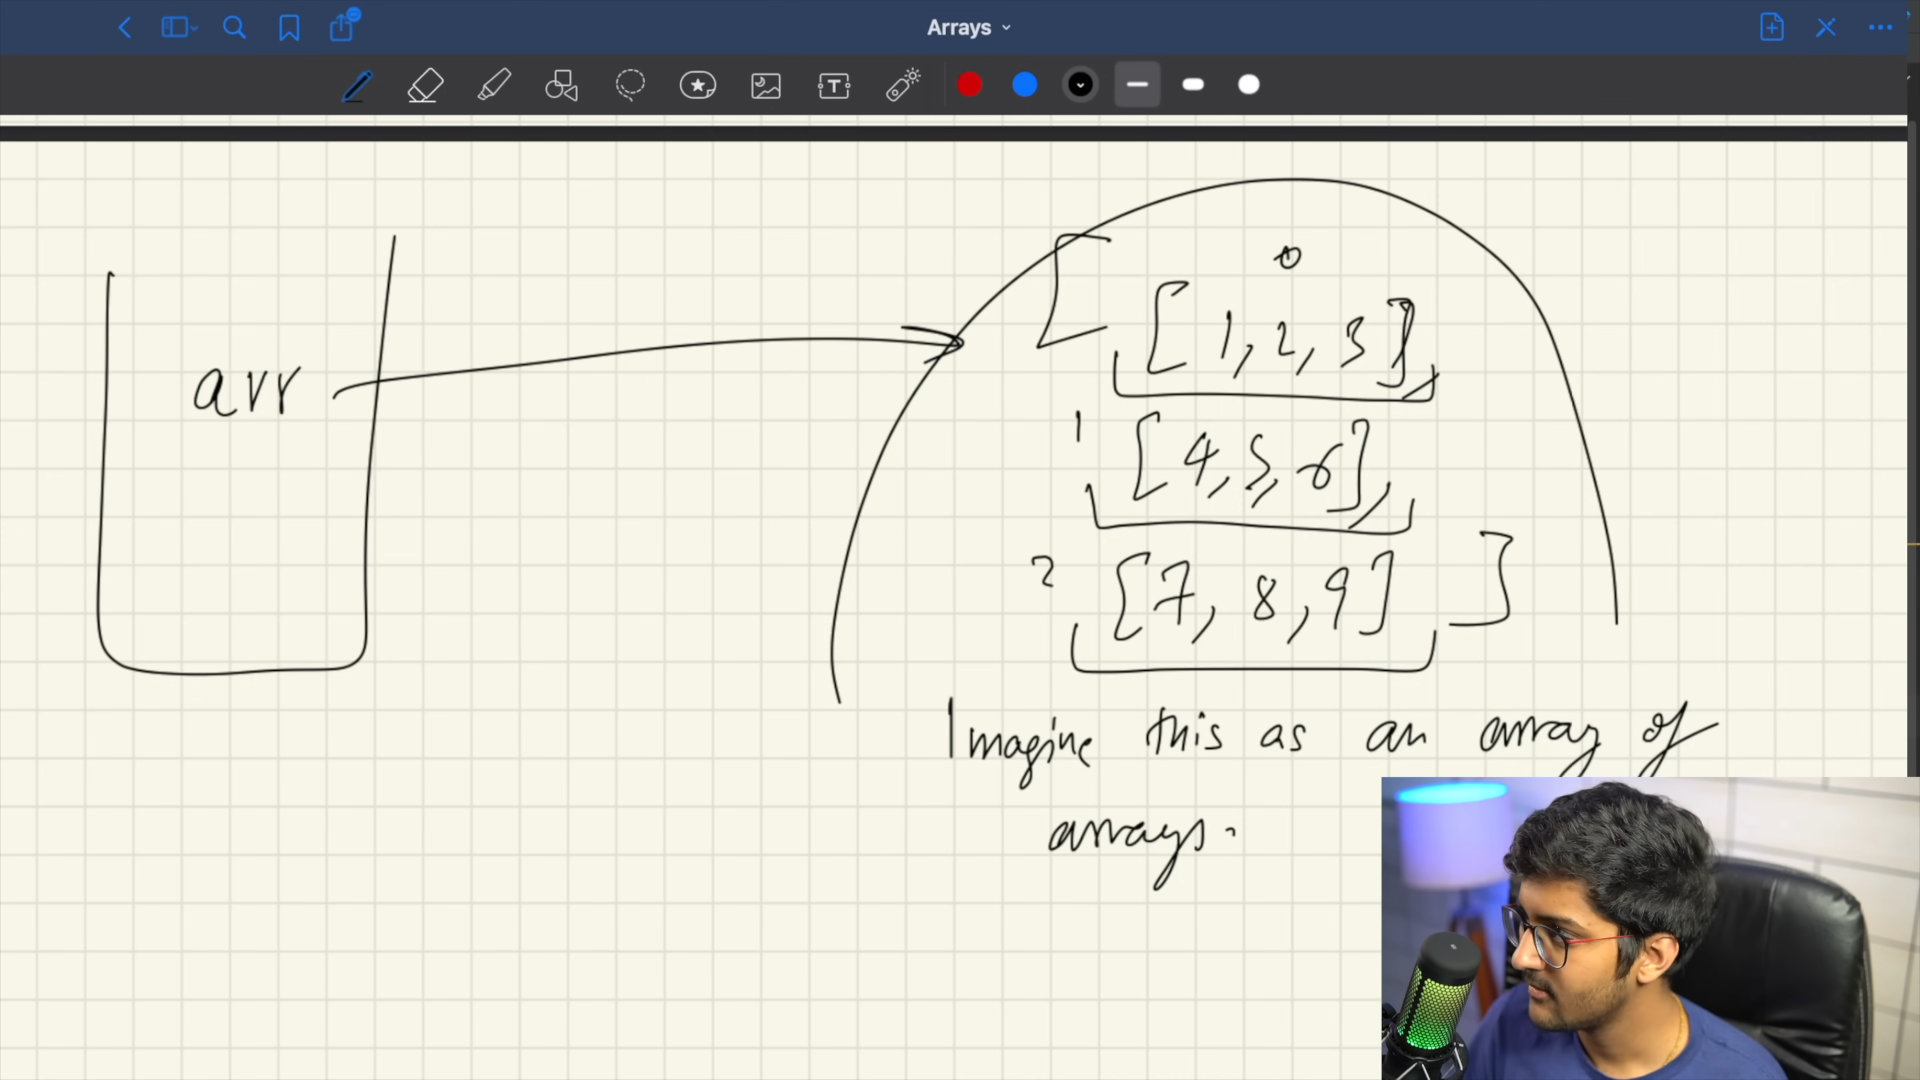 Arrays
arr
0
[ [ 1, 2, 3 ],
1 [ 4, 5, 6 ],
2 [ 7, 8, 9 ] ]
Imagine this as an array of
arrays.